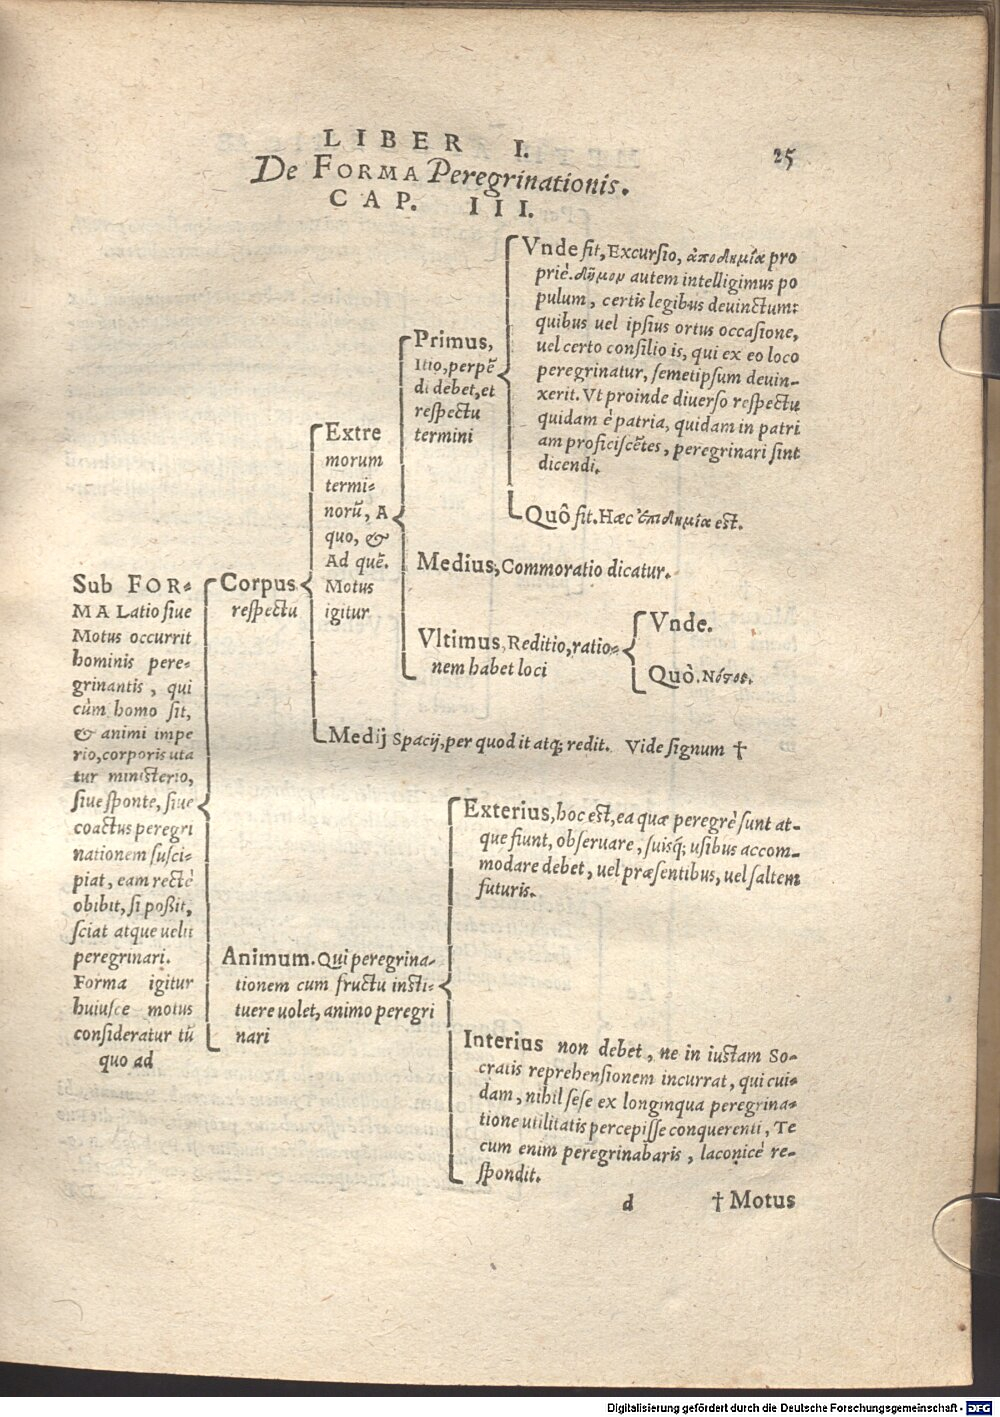 LIBER I.
25
De FORMA Peregrinationis.
CAP. III.
Sub FOR-
MA Latio siue
Motus occurrit
hominis pere-
grinantis, qui
cùm homo sit,
& animi impe
rio, corporis uta
tur ministerio,
siue sponte, siue
coactus peregri
nationem susci-
piat, eam rectè
obibit, si poßit,
sciat atque uelit
peregrinari.
Forma igitur
huiusce motus
consideratur tū
quo ad
Corpus
respectu
Extre
morum
termi-
norū, A
quo, &
Ad quē.
Motus
igitur
Primus,
Itio, perpē
di debet, et
respectu
termini
Vnde fit, Excursio, ἀποδημία pro
priè. δῆμον autem intelligimus po
pulum, certis legibus deuinctum:
quibus uel ipsius ortus occasione,
uel certo consilio is, qui ex eo loco
peregrinatur, semetipsum deuin-
xerit. Vt proinde diuerso respectu
quidam è patria, quidam in patri
am proficiscētes, peregrinari sint
dicendi.
Quô fit. Hæc ἐπιδημία est.
Medius, Commoratio dicatur.
Vltimus, Reditio, ratio-
nem habet loci
Vnde.
Quò. Νόςος.
Medij Spacij, per quod it atq; redit. Vide signum †
Animum. Qui peregrina-
tionem cum fructu insti-
tuere uolet, animo peregri
nari
Exterius, hoc est, ea quæ peregrè sunt at-
que fiunt, obseruare, suisq; usibus accom-
modare debet, uel præsentibus, uel saltem
futuris.
Interius non debet, ne in iustam So-
cratis reprehensionem incurrat, qui cui-
dam, nihil sese ex longinqua peregrina-
tione utilitatis percepisse conquerenti, Te
cum enim peregrinabaris, laconicè re-
spondit.
d
† Motus
Digitalisierung gefördert durch die Deutsche Forschungsgemeinschaft - DFG